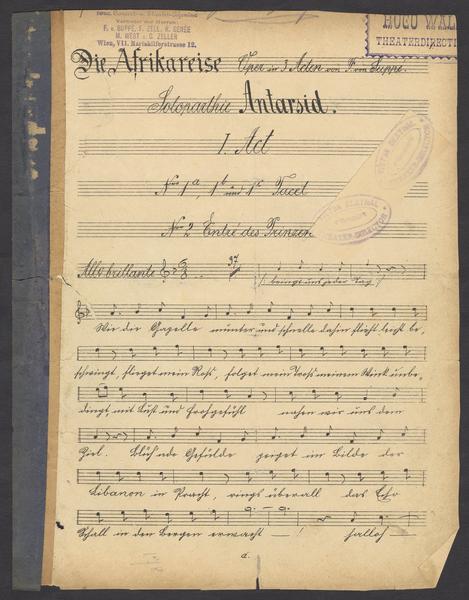 Vertreter der Herren:
F. v. SUPPÉ, F. ZELL, R. GENÉE
M. WEST u. C. ZELLER
Wien, VII. Mariahilferstrasse 12.
HUGO WAL
THEATERDIRECT
Die Afrikareise Oper in 3 Acten von F. von Suppé.
Soloparthie Antarsid.
I. Act
Nro 1a, 1b und 1c Tacet
Nro 2 Entré des Prinzen
Allo brillante 37
bringt uns jeder Tag
Wie die Gazelle munter und schnelle dahin flieht leicht be,
schwingt, flieget mein Roß, folget mein Troß meinem Wink unbe,
dingt, mit Lust und Frohgefühl nahen wir uns dem
Ziel. Blühende Gefilde zeiget im Bilde der
Libanon in Pracht, rings überall das Echo
Schall in den Bergen erwacht ! halloh
d.